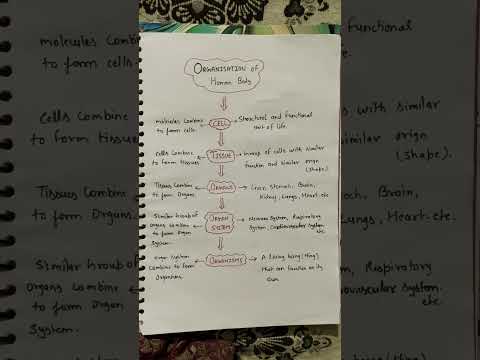 ORGANISATION of
Human Body
molecules combine
to form cells.
CELL
Structural and functional
unit of life.
Cells Combine
to form tissues
TISSUE
Group of cells with similar
function and similar orign
(shape).
Tissues Combine
to form Organs.
ORGANS
Liver, Stomach, Brain,
Kidney, Lungs, Heart. etc
Similar Group of
organs combine
to form Organ
System.
ORGAN
SYSTEM
Nervous System, Respiratory
System, Cardiovascular System.
etc
organ System
Combine to form
Organism
ORGANISMS
A living being (thing)
that can function on its
own
molecules combine
to form cells.
functional
Cells Combine
to form tissues
with similar
similar orign
(shape).
Tissues Combine
to form Organs.
Brain,
Lungs, Heart. etc.
Similar Group of
organs combine
to form Organ
System.
Respiratory
System.
etc